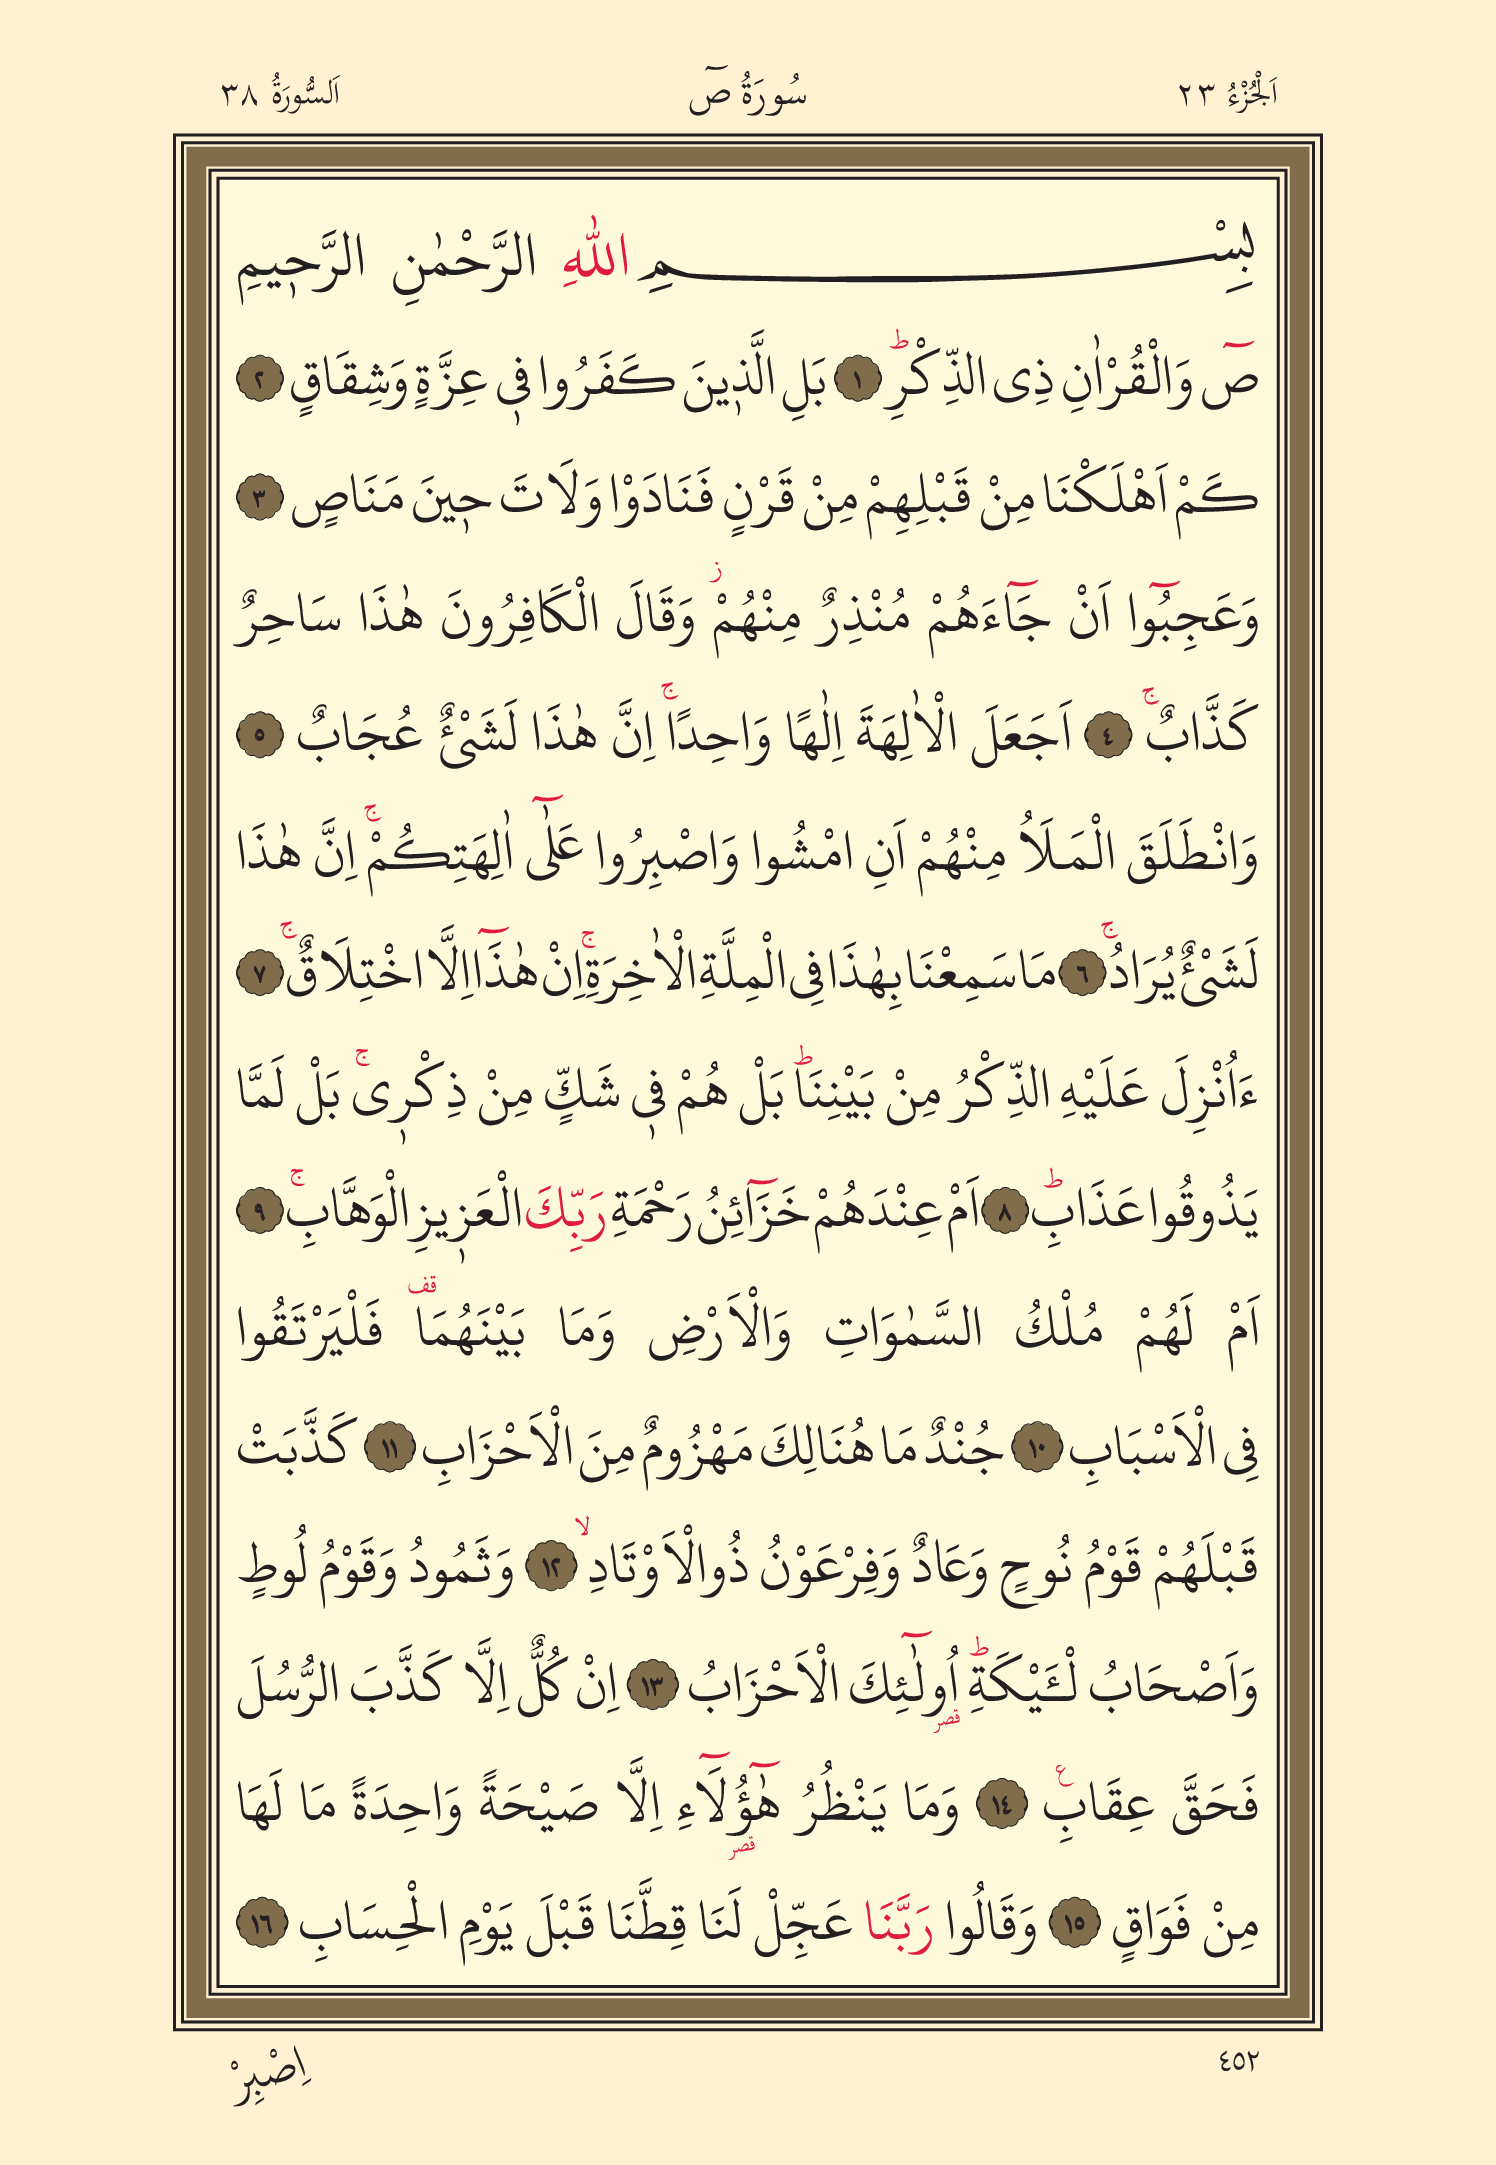 اَلْجُزْءُ ٢٣
سُورَةُ صٓ
اَلسُّورَةُ ٣٨
بِسْمِ اللّٰهِ الرَّحْمٰنِ الرَّح۪يمِ
صٓ وَالْقُرْاٰنِ ذِى الذِّكْرِۜ ﴿١﴾ بَلِ الَّذ۪ينَ كَفَرُوا ف۪ى عِزَّةٍ وَشِقَاقٍ ﴿٢﴾
كَمْ اَهْلَكْنَا مِنْ قَبْلِهِمْ مِنْ قَرْنٍ فَنَادَوْا وَلَاتَ ح۪ينَ مَنَاصٍ ﴿٣﴾
وَعَجِبُٓوا اَنْ جَٓاءَهُمْ مُنْذِرٌ مِنْهُمْۘ وَقَالَ الْكَافِرُونَ هٰذَا سَاحِرٌ
كَذَّابٌۚ ﴿٤﴾ اَجَعَلَ الْاٰلِهَةَ اِلٰهًا وَاحِدًاۚ اِنَّ هٰذَا لَشَىْءٌ عُجَابٌ ﴿٥﴾
وَانْطَلَقَ الْمَلَاُ مِنْهُمْ اَنِ امْشُوا وَاصْبِرُوا عَلٰٓى اٰلِهَتِكُمْۚ اِنَّ هٰذَا
لَشَىْءٌ يُرَادُۚ ﴿٦﴾ مَا سَمِعْنَا بِهٰذَا فِى الْمِلَّةِ الْاٰخِرَةِۚ اِنْ هٰذَٓا اِلَّا اخْتِلَاقٌۚ ﴿٧﴾
ءَاُنْزِلَ عَلَيْهِ الذِّكْرُ مِنْ بَيْنِنَاۜ بَلْ هُمْ ف۪ى شَكٍّ مِنْ ذِكْر۪ىۚ بَلْ لَمَّا
يَذُوقُوا عَذَابِۜ ﴿٨﴾ اَمْ عِنْدَهُمْ خَزَٓائِنُ رَحْمَةِ رَبِّكَ الْعَز۪يزِ الْوَهَّابِۚ ﴿٩﴾
اَمْ لَهُمْ مُلْكُ السَّمٰوَاتِ وَالْاَرْضِ وَمَا بَيْنَهُمَا قف فَلْيَرْتَقُوا
فِى الْاَسْبَابِ ﴿١٠﴾ جُنْدٌ مَا هُنَالِكَ مَهْزُومٌ مِنَ الْاَحْزَابِ ﴿١١﴾ كَذَّبَتْ
قَبْلَهُمْ قَوْمُ نُوحٍ وَعَادٌ وَفِرْعَوْنُ ذُوالْاَوْتَادِۙ ﴿١٢﴾ وَثَمُودُ وَقَوْمُ لُوطٍ
وَاَصْحَابُ لْـَٔيْكَةِۜ اُو۬لٰٓئِكَ الْاَحْزَابُ ﴿١٣﴾ اِنْ كُلٌّ اِلَّا كَذَّبَ الرُّسُلَ
قصر
فَحَقَّ عِقَابِ ع ﴿١٤﴾ وَمَا يَنْظُرُ هٰٓؤُلَٓاءِ اِلَّا صَيْحَةً وَاحِدَةً مَا لَهَا
قصر
مِنْ فَوَاقٍ ﴿١٥﴾ وَقَالُوا رَبَّنَا عَجِّلْ لَنَا قِطَّنَا قَبْلَ يَوْمِ الْحِسَابِ ﴿١٦﴾
٤٥٢
اِصْبِرْ